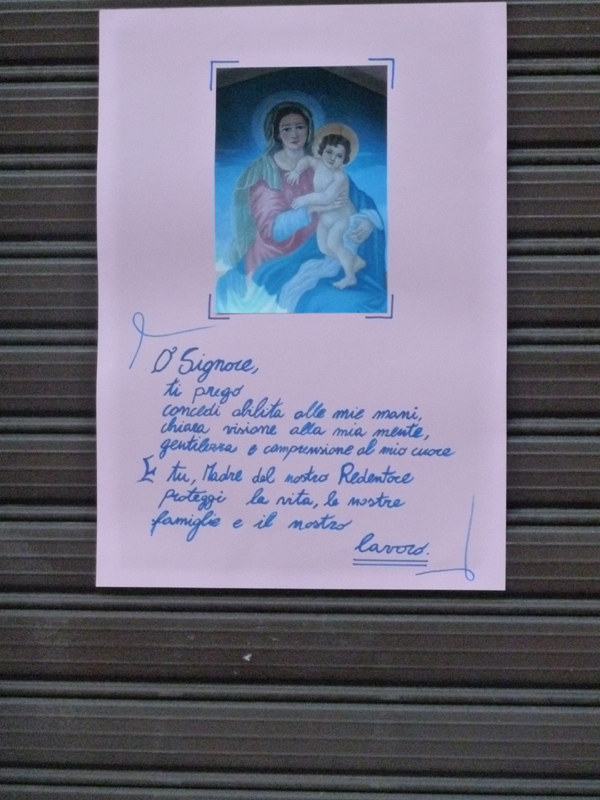 O' Signore,
ti prego
concedi abilita alle mie mani,
chiara visione alla mia mente,
gentilezza e comprensione al mio cuore
E tu, Madre del nostro Redentore
proteggi la vita, le nostre
famiglie e il nostro
lavoro.